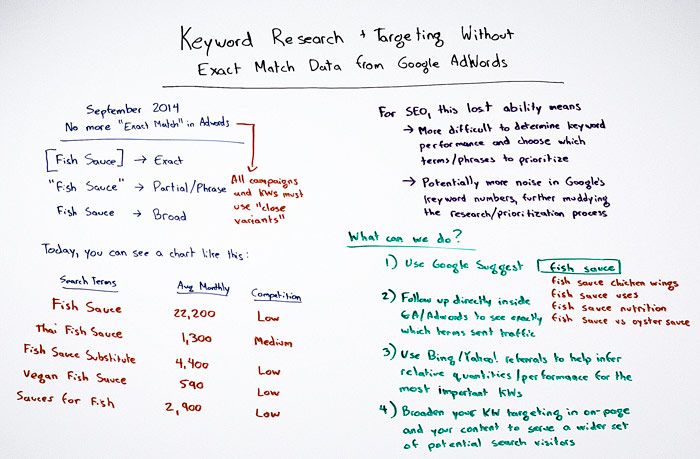 Keyword Research + Targeting Without
Exact Match Data from Google AdWords
September 2014
No more "Exact Match" in Adwords
[Fish Sauce] → Exact
"Fish Sauce" → Partial/Phrase
Fish Sauce → Broad
All campaigns
and KWs must
use "close
variants"
Today, you can see a chart like this:
Search Terms Avg Monthly Competition
Fish Sauce 22,200 Low
Thai Fish Sauce 1,300 Medium
Fish Sauce Substitute 4,400 Low
Vegan Fish Sauce 590 Low
Sauces for Fish 2,900 Low
For SEO, this lost ability means
→ More difficult to determine keyword
performance and choose which
terms/phrases to prioritize
→ Potentially more noise in Google's
keyword numbers, further muddying
the research/prioritization process
What can we do?
1) Use Google Suggest
fish sauce
fish sauce chicken wings
fish sauce uses
fish sauce nutrition
fish sauce vs oyster sauce
2) Follow up directly inside
GA/Adwords to see exactly
which terms sent traffic
3) Use Bing/Yahoo! referrals to help infer
relative quantities/performance for the
most important KWs
4) Broaden your KW targeting in on-page
and your content to serve a wider set
of potential search visitors